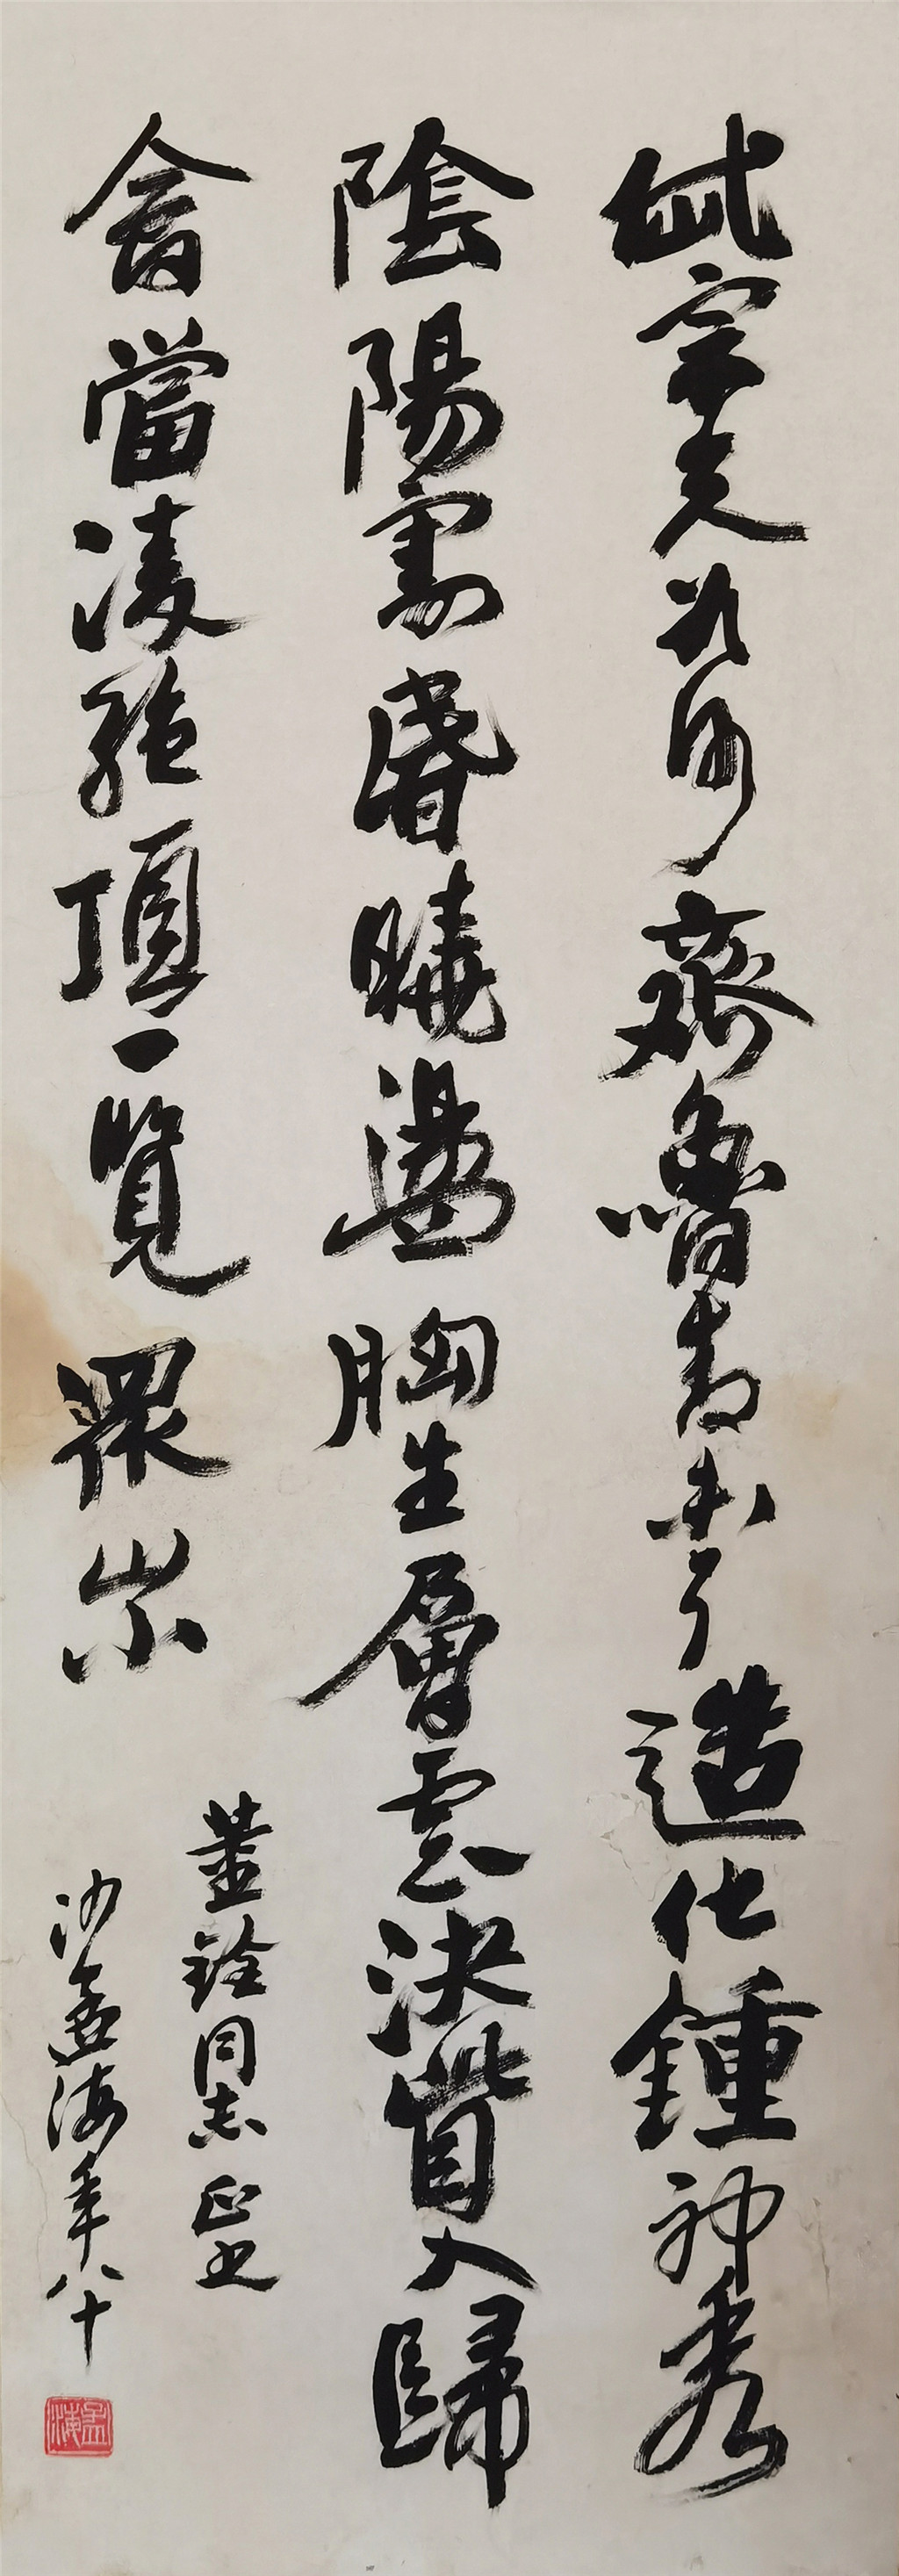 岱宗夫如何齊魯青未了造化鍾神秀
陰陽割昏曉盪胸生層雲決眥入歸
會當凌絕頂一覽眾山小
董銓同志正之
沙孟海年八十
孟海